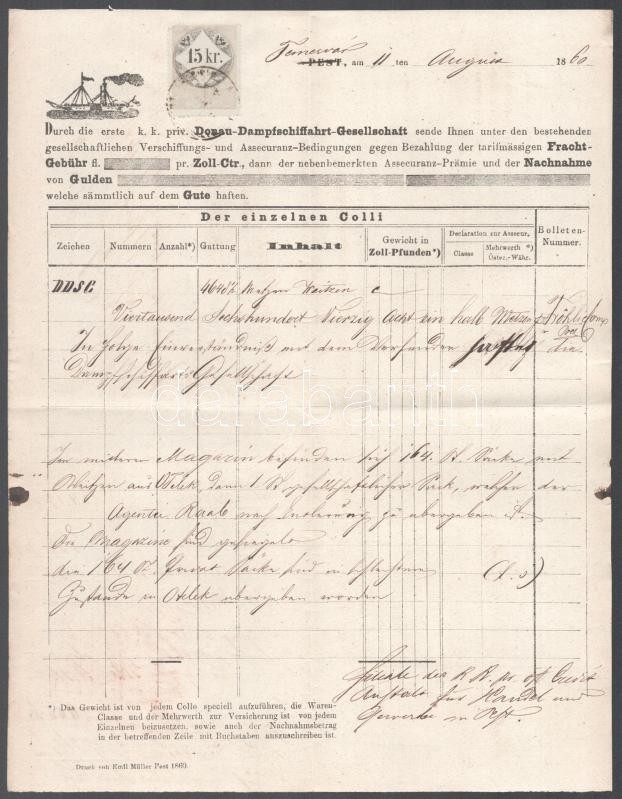 15 kr.
Temesvár
PEST, am 11 ten August 1860
Durch die erste k. k. priv. Donau-Dampfschiffahrt-Gesellschaft sende Ihnen unter den bestehenden
gesellschaftlichen Verschiffungs- und Assecuranz-Bedingungen gegen Bezahlung der tarifmässigen Fracht-
Gebühr fl. pr. Zoll-Ctr., dann der nebenbemerkten Assecuranz-Prämie und der Nachnahme
von Gulden
welche sämmtlich auf dem Gute haften.
Der einzelnen Colli
Zeichen Nummern Anzahl*) Gattung Inhalt Gewicht in Zoll-Pfunden*) Declaration zur Assecur. Classe Mehrwerth *) Öster.-Währ. Bolleten-Nummer.
DDSG 4648½ Metzen Waitzen
Viertausend Sechshundert Vierzig Acht ein halb Metzen
In Folge Einverständniß mit dem Versender haftet die
Dampfschiffarts Gesellschaft
darabanth
Im unteren Magazin befinden sich 164 St. Säcke mit
Weitzen aus Otelek, dann 1 St. gesellschaftlicher Sack, welchen der
Agentie Raab nach zu übergeben ist.
Die Magazine sind
die 164 St. Privat Säcke sind in schlechtem
Zustande in Otelek übergeben worden
Filiale der K. K. pr. öst. Credit
Anstalt für Handel und
Gewerbe in Pest.
*) Das Gewicht ist von jedem Collo speciell aufzuführen, die Waren-
Classe und der Mehrwerth zur Versicherung ist von jedem
Einzelnen beizusetzen, sowie auch der Nachnahmsbetrag
in der betreffenden Zeile mit Buchstaben auszuschreiben ist.
Druck von Emil Müller Pest 1860.